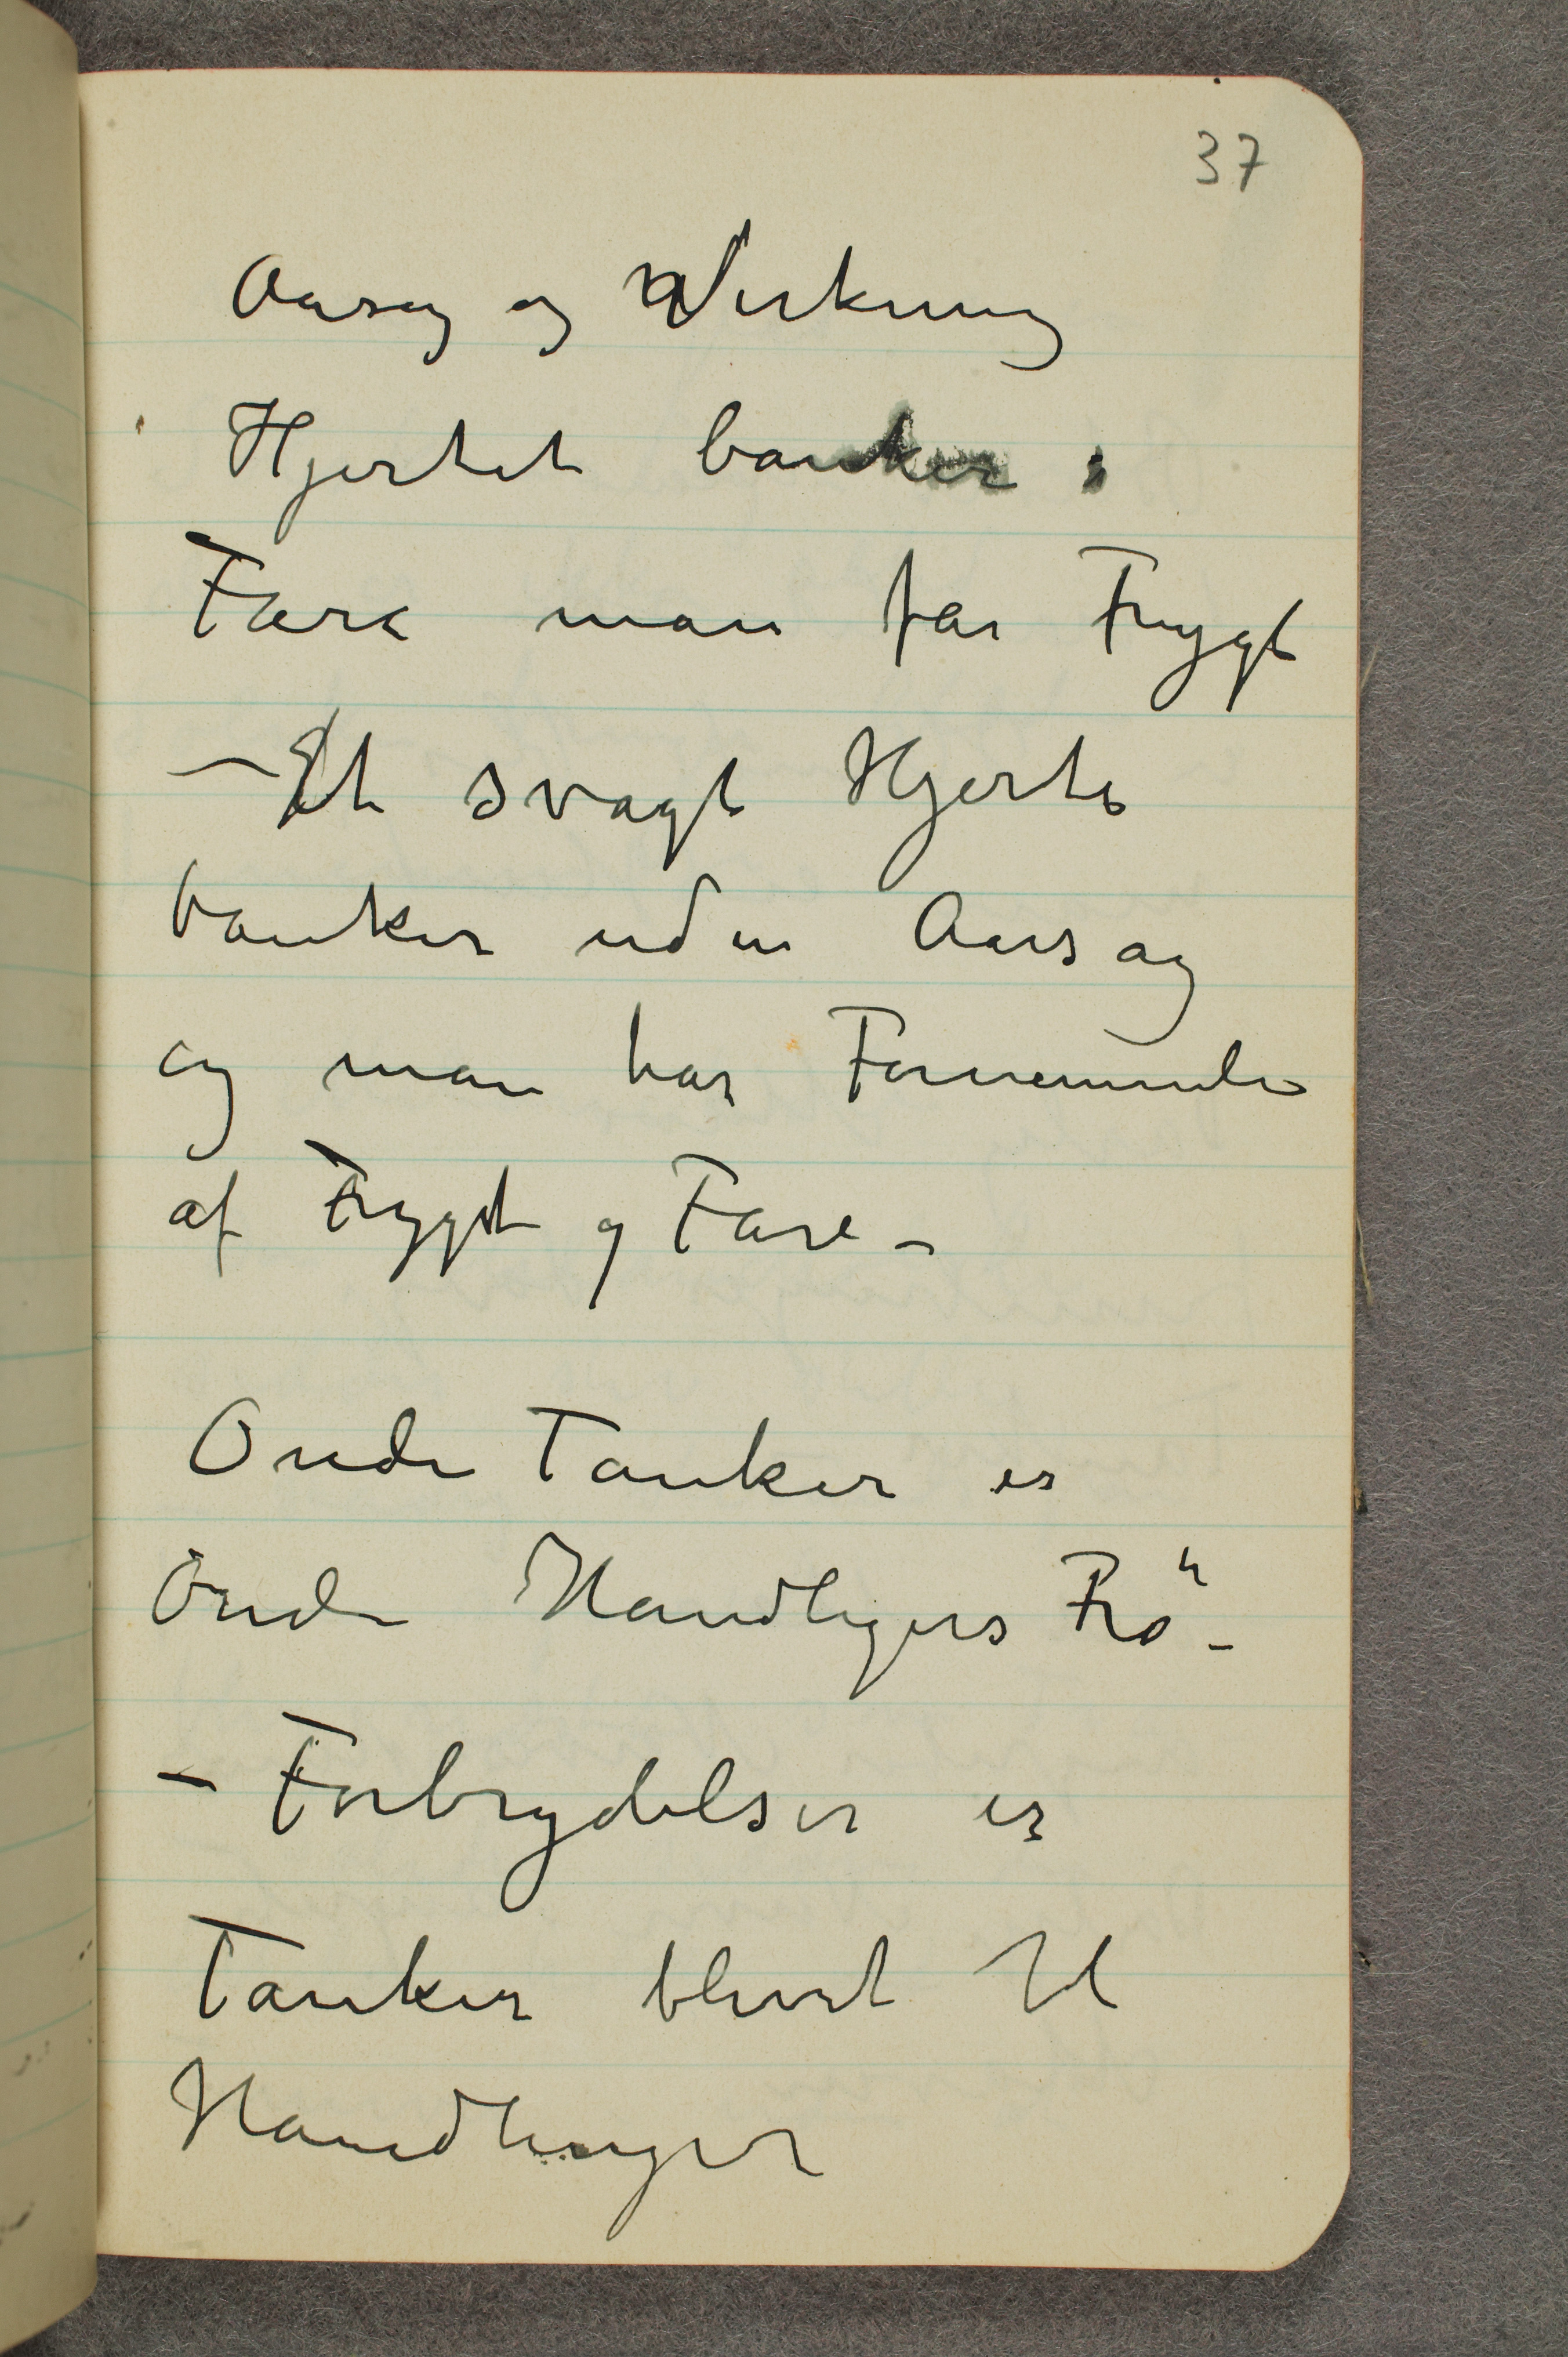 37
Aarsag og Virkning
Hjertet banker i
Fare man får Frygt
– Et svagt Hjerte
banker uden Aarsag
og man har Fornemmelse
af Frygt og Fare –
Onde Tanker er
onde Handligers Frö –
– Forbrydelser er
Tanker blevet til
Handlinger